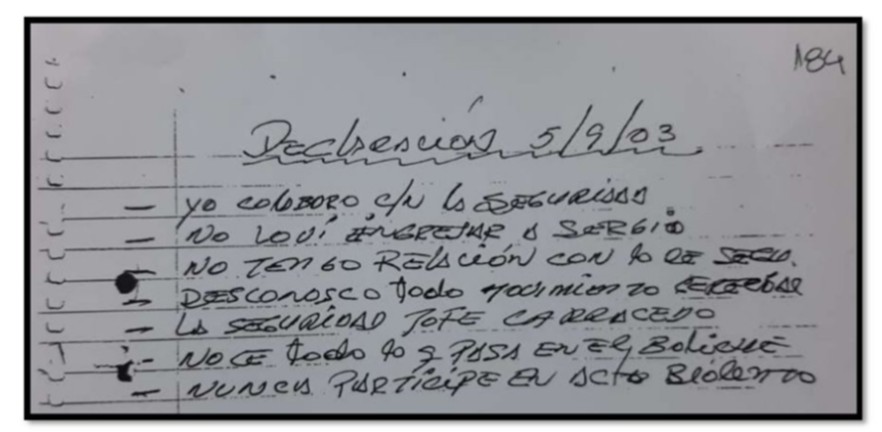 184
Declaración 5/9/03
- YO COLABORO C/N LA SEGURIDAD
- NO LO VÍ INGRESAR A SERGIO
- NO TENGO RELACIÓN CON LO DE SEGU.
- DESCONOSCO todo MOVIMIENTO
- LA SEGURIDAD JOFE CARRACEDO
- NO CE todo lo q PASA EN EL BOLICHE
- NUNCA PARTÍCIPE EN ACTO BIOLENTO